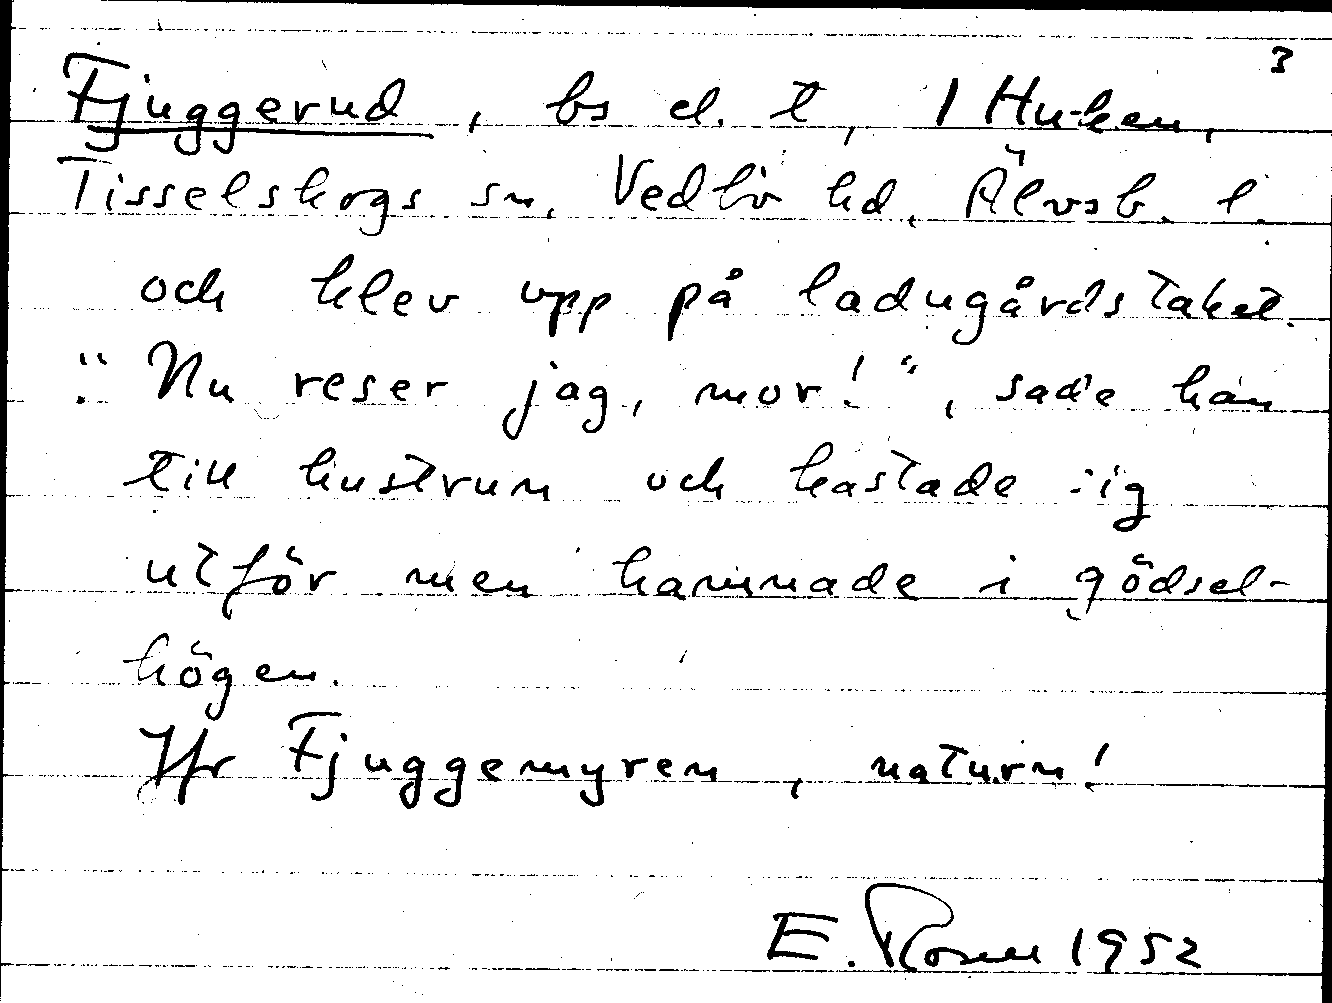 3
Fjuggerud, bs el. t, 1 Huken,
Tisselskogs sn. Vedbo hd. Älvsb. l.
och klev upp på ladugårdstaket.
"Nu reser jag, mor!", sade han
till hustrun och kastade sig
utför men hamnade i gödsel-
högen.
Jfr Fjuggemyren, naturn!
E. Rosell 1952